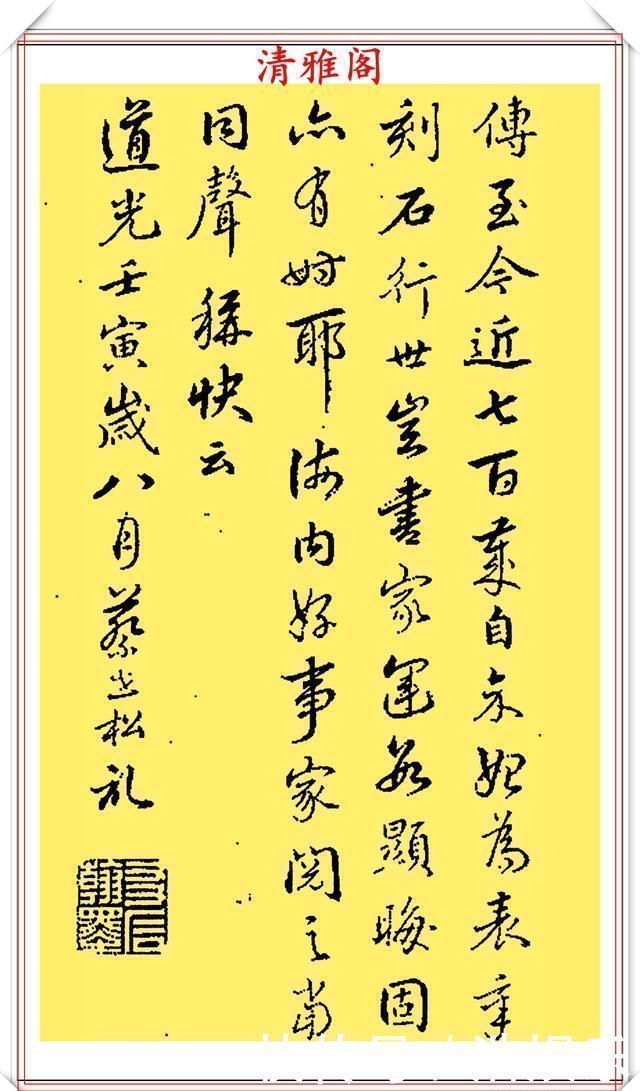 清雅阁
傳至今近七百載自余始為表章
刻石行世豈書家運數顯晦固
亦有時耶海内好事家閱之當
同聲稱快云
道光壬寅歲八月蔡世松